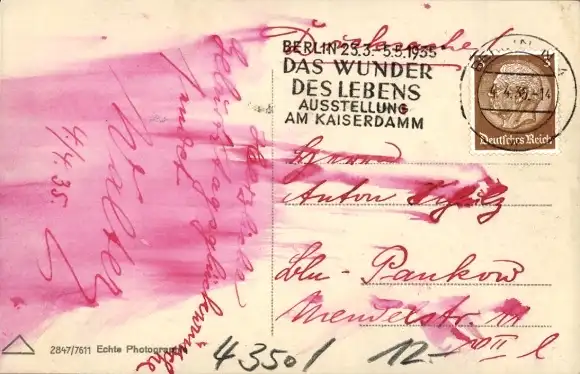 Drucksache!
BERLIN 23.3.-5.5.1935
DAS WUNDER
DES LEBENS
AUSSTELLUNG
AM KAISERDAMM
BERLIN
4.4.35.-14
Deutsches Reich
Herrn
Anton
Bln-Pankow
Mendelstr.
II l
Herzliche
Geburtstagsglückwünsche
sendet
Walter
4/4.35.
2847/7611 Echte Photographie
43501 12.-